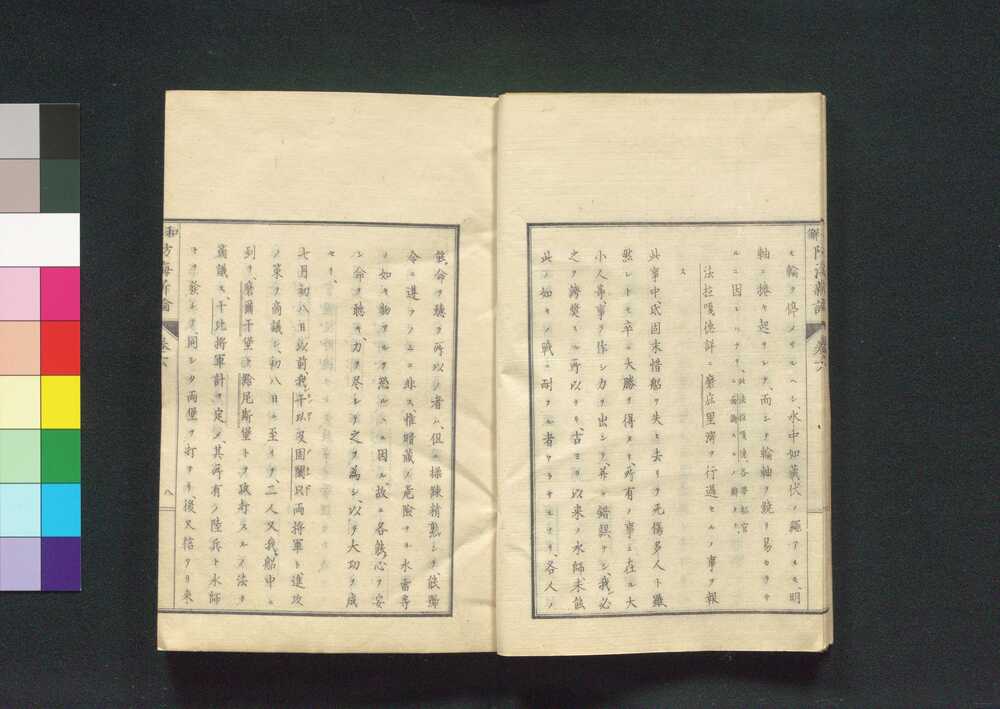 ヒ輪ヲ停メサルヘシ、水中如萬伏ノ繩アルモ、明
軸ニ捲キ起サレテ、而シテ輪軸ヲ繞リ易カラサ
ルニ因レリナリ、
法拉嘎德詳ニ磨庇里灣ヲ行過セルノ事ヲ報
ス
此事中式固末惜船ヲ失ヒ去リテ死傷多人ト雖
然レトモ卒ニ大勝ヲ得タリ、所有ノ事ニ在ル大
小人等、事ヲ作シ力ヲ出シテ、并ニ錯誤ナシ、我必
之ヲ誇奬スル所以ナリ、古ヨリ以来ノ水師未能
此ノ如キノ戰ニ耐フル者アラサルナリ、各人ノ
能命ヲ聽ク所以ノ者ハ、但ニ操練精熟シテ、依歸
令ニ遵フノミニ非ス、惟暗藏ノ危險ナル水雷等
ノ如キ物アルヲ恐ルヽニ因ル、故ニ各能心ヲ安
シ命ヲ聽キ、力ヲ尽シテ之ヲ為シ、以テ大功ヲ成
セリ、
七月初八日以前我干以及固闌只両将軍ト進攻
ノ策ヲ商議シ、初八日ニ至イテ、二人又我船中ニ
到リ、磨爾干堡ト給尾斯堡トヲ砥打スルノ法ヲ
商議ス、干比将軍計ヲ定メ、其所有ノ陸兵ト水師
トヲ發シテ、同シク両堡ヲ打ツ、後又信アリ来
防海新論
八